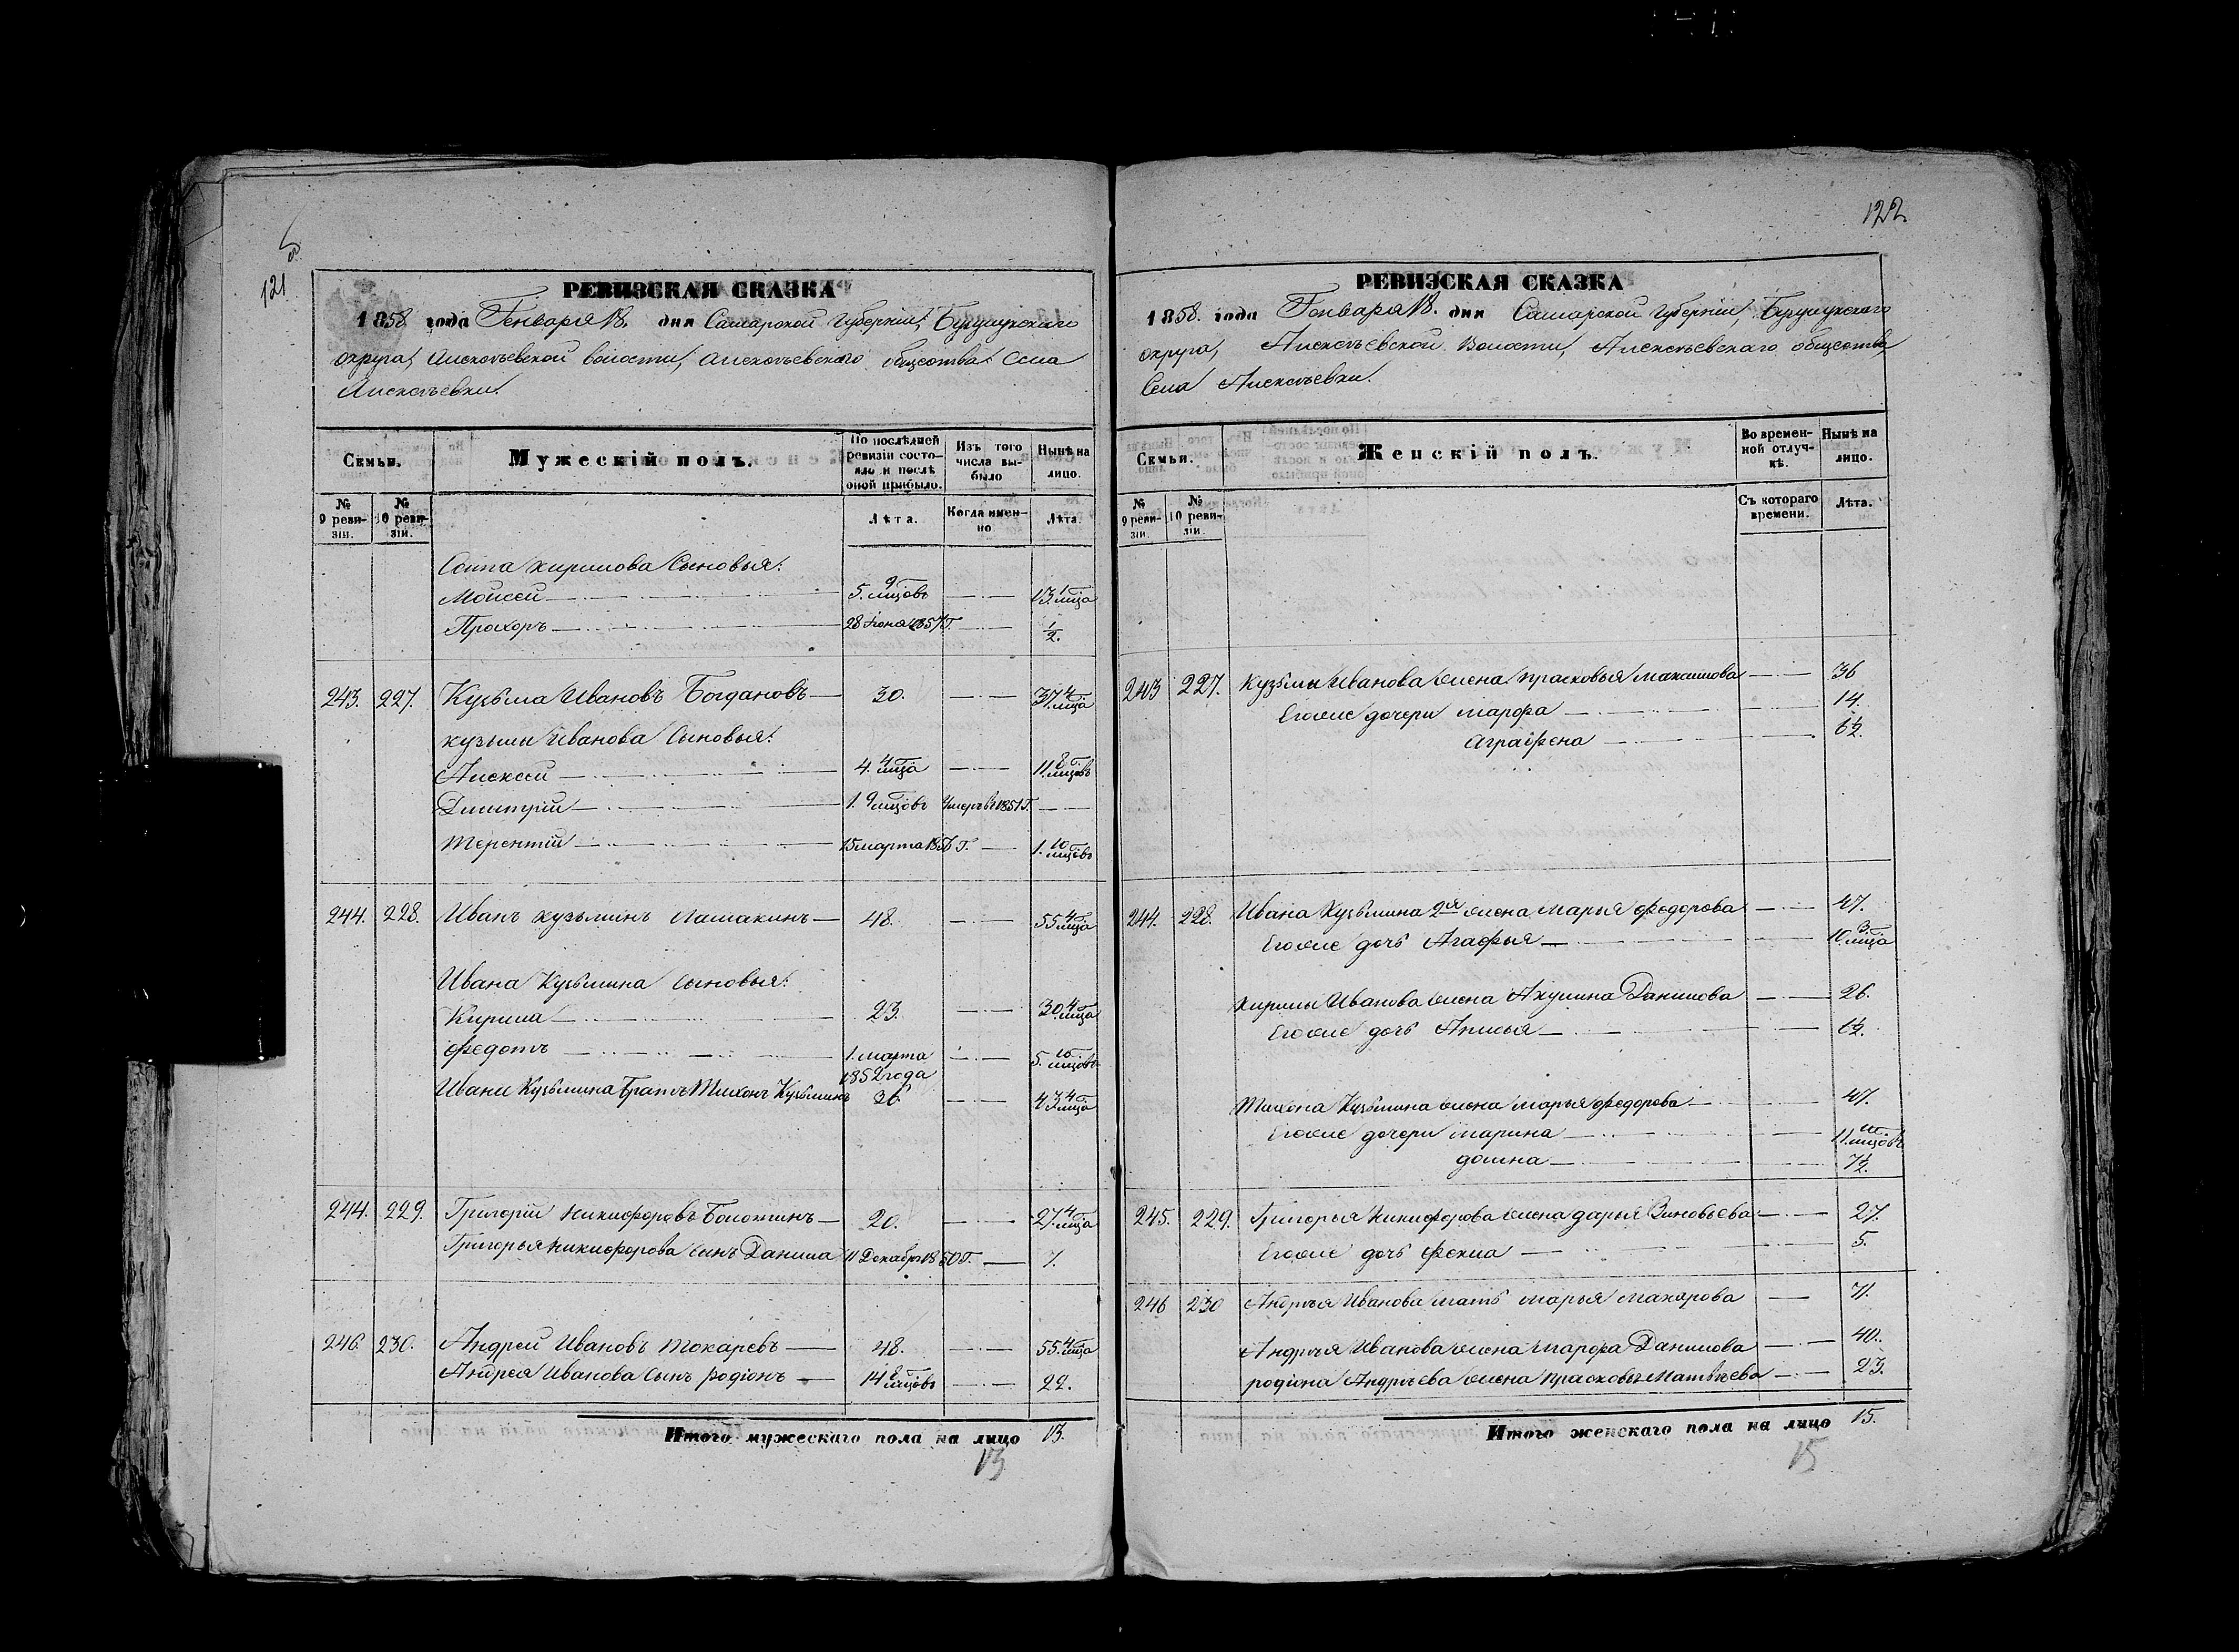 121
РЕВИЗСКАЯ СКАЗКА
1858. года Генваря 18. дня Самарской Губерніи, Бузулукскаго
округа, Алексѣевской волости, Алексѣевскаго общества Села
Алексѣевки.
Семьи.
Мужескій полъ.
По послѣдней ревизіи состояло и послѣ оной прибыло.
Изъ того числа выбыло
Нынѣ на лицо.
№ 9 ревизіи.
№ 10 ревизіи.
Лѣта.
Когда именно
Лѣта.
Осипа Кирилова Сыновья:
Моисей 5. 9 мцовъ 13. 1 мца
Прохоръ 28 Іюня 1857 г. ½.
243. 227. Кузьма Ивановъ Богдановъ 30. 37. 4 мца
Кузьмы Иванова Сыновья:
Алексѣй 4. 4 мца 11. 8 мцовъ
Дмитрій 1. 9 мцовъ Умеръ въ 1851 г.
Терентій 15 марта 1856 г. 1. 10 мцовъ
244. 228. Иванъ Кузьминъ 48. 55. 4 мца
Ивана Кузьмина Сыновья:
Кирила 23. 30. 4 мца
Федотъ 1. марта 1852 года 5. 10 мцовъ
Ивана Кузьмина братъ Тихонъ Кузьминъ 36 43. 4 мца
244. 229. Григорій Никифоровъ Болотинъ 20. 27. 4 мца
Григорья Никифорова сынъ Данила 11 Декабря 1850 г. 7.
246. 230. Андрей Ивановъ Токаревъ 48. 55. 4 мца
Андрея Иванова Сынъ Родіонъ 14. 8 мцовъ 22.
Итого мужескаго пола на лицо 13.
13
122.
РЕВИЗСКАЯ СКАЗКА
1858. года Генваря 18. дня Самарской Губерніи, Бузулукскаго
округа, Алексѣевской Волости, Алексѣевскаго общества,
Села Алексѣевки.
Семьи.
Женскій полъ.
Во временной отлучкѣ.
Нынѣ на лицо.
№ 9 ревизіи.
№ 10 ревизіи.
Съ котораго времени.
Лѣта.
243 227. Кузьмы Иванова жена Прасковья Максимова 36
Егоже дочери Марфа 14.
Аграфена 1½.
244. 228. Ивана Кузьмина 2я жена Марья Федорова 47.
Егоже дочь Агафья 10. 3 мца
Кирилы Иванова жена Акулина Данилова 26.
Егоже дочь Анисья 1½.
Тихона Кузьмина жена Марья Федорова 47.
Егоже дочери Марина 11. мцовъ
Домна 7½.
245. 229. Григорья Никифорова жена Дарья Зиновьева 27.
Егоже дочь Фекла 5.
246 230 Андрея Иванова мать Марья Макарова 71.
Андрея Иванова жена Марфа Данилова 40.
Родіона Андрѣева жена Прасковья Матвѣева 23.
Итого женскаго пола на лицо 15.
15